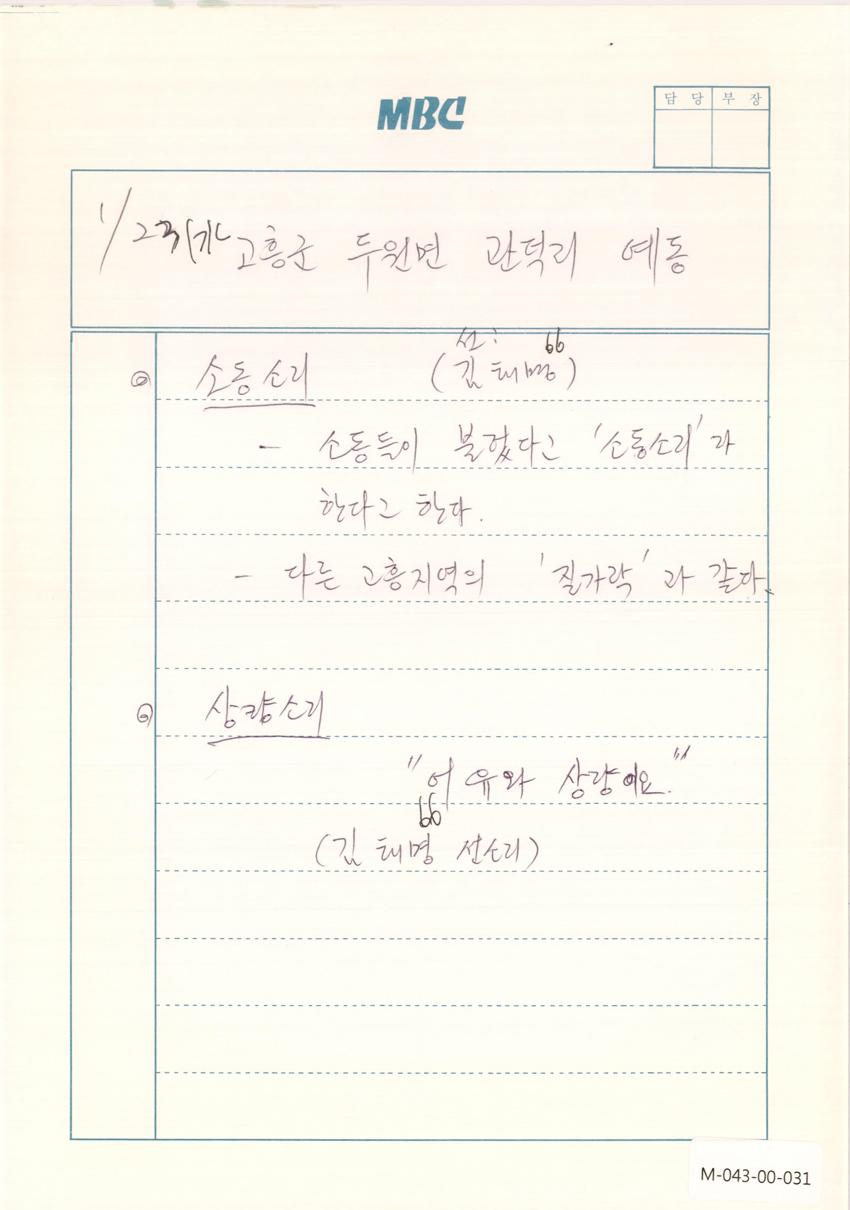 MBC
담 당 부 장
1/23 고흥군 두원면 관덕리 예동
선: 66
소동소리 (김태명)
- 소동들이 불렀다고 '소동소리'라
한다고 한다.
- 다른 고흥지역의 '질가락'과 같다.
상량소리
"어유와 상량이요."
66
(김태명 선소리)
M-043-00-031